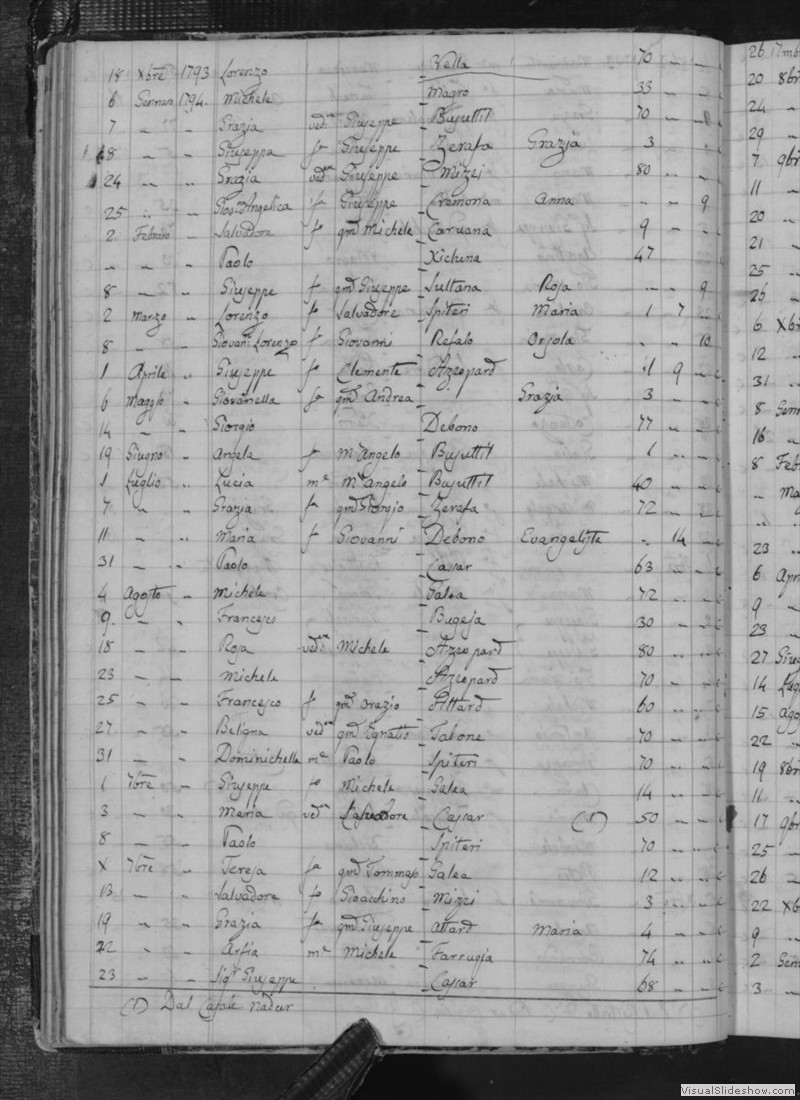 18 Xbre 1793 Lorenzo Vella 70 " "
6 Gennaro 1794. Michele Magro 33 " "
7 " " Grazia ved. Giuseppe Bujuttil 70 " "
18 " " Giuseppa fa Giuseppe Zerafa Grazia 3
24 " " Grazia ved. Giuseppe Mizzi 80 " "
25 " " Angelica fa Giuseppe Cremona Anna " " 9
2 Febraro " Salvadore fo qm Michele Caruana 9 " "
" " " Paolo Xichuna 47
8 " " Giuseppe f qm Giuseppe Sultana Rosa " " 9
2 Marzo " Lorenzo fo Salvadore Spiteri Maria 1 7 "
8 " " Giovani Lorenzo f Giovanni Refalo Orsola " " 10
1 Aprile " Giuseppe fo Clemente Azzopard 11 9 "
6 Maggio " Giovanella fa qm Andrea Grazia 3 "
14 " " Giorgio Debono 77 " "
19 Giugno " Angela f M Angelo Bujuttil 1 " "
1 Luglio " Lucia me M Angelo Bujuttil 40 " "
7 " " Grazia fa qm Giorgio Zerafa 72 " "
11 " " Maria fa Giovanni Debono Evangelista " 14 "
31 " " Paolo Cassar 63 " "
4 Agosto " Michele Galea 72 " "
9. " " Francesco Bugeja 30 " "
18 " " Rosa ved. Michele Azzopard 80 " "
23 " " Michele Azzopard 70 " "
25 " " Francesco f qm Orazio Attard 60 " "
27 " " Betigna ved. qm Ignatio Tabone 70 " "
31 " " Dominichella me Paolo Spiteri 70 " "
1 7bre " Giuseppe fo Michele Galea 14 " "
3 " " Maria ved. Salvadore Cassar (1) 50 " "
8 " " Paolo Spiteri 70 " "
X 7bre " Teresa fa qm Tommaso Galea 12 " "
13 " " Salvadore fo Gioacchino Mizzi 3 " "
19 " " Grazia fa qm Giuseppe Attard Maria 4 " "
22 " " Arfia me Michele Farrugia 74 " "
23 " " Sigr Giuseppe Cassar 68 " "
(1) Dal Casale Nadur
26 17mb
20 8br
24 "
29 "
7 9br
11 "
20 "
21 "
25 "
26 "
6 Xbr
12 "
31 "
8 Genn
16 "
8 Feb
" Ma
" "
23 "
6 Apri
9 "
23 "
27 Giug
14 Lug
15 Ago
22 "
19 8br
11 "
17 9br
25 "
26 "
22 Xb
9 "
2 Genn
3 "
VisualSlideshow.com